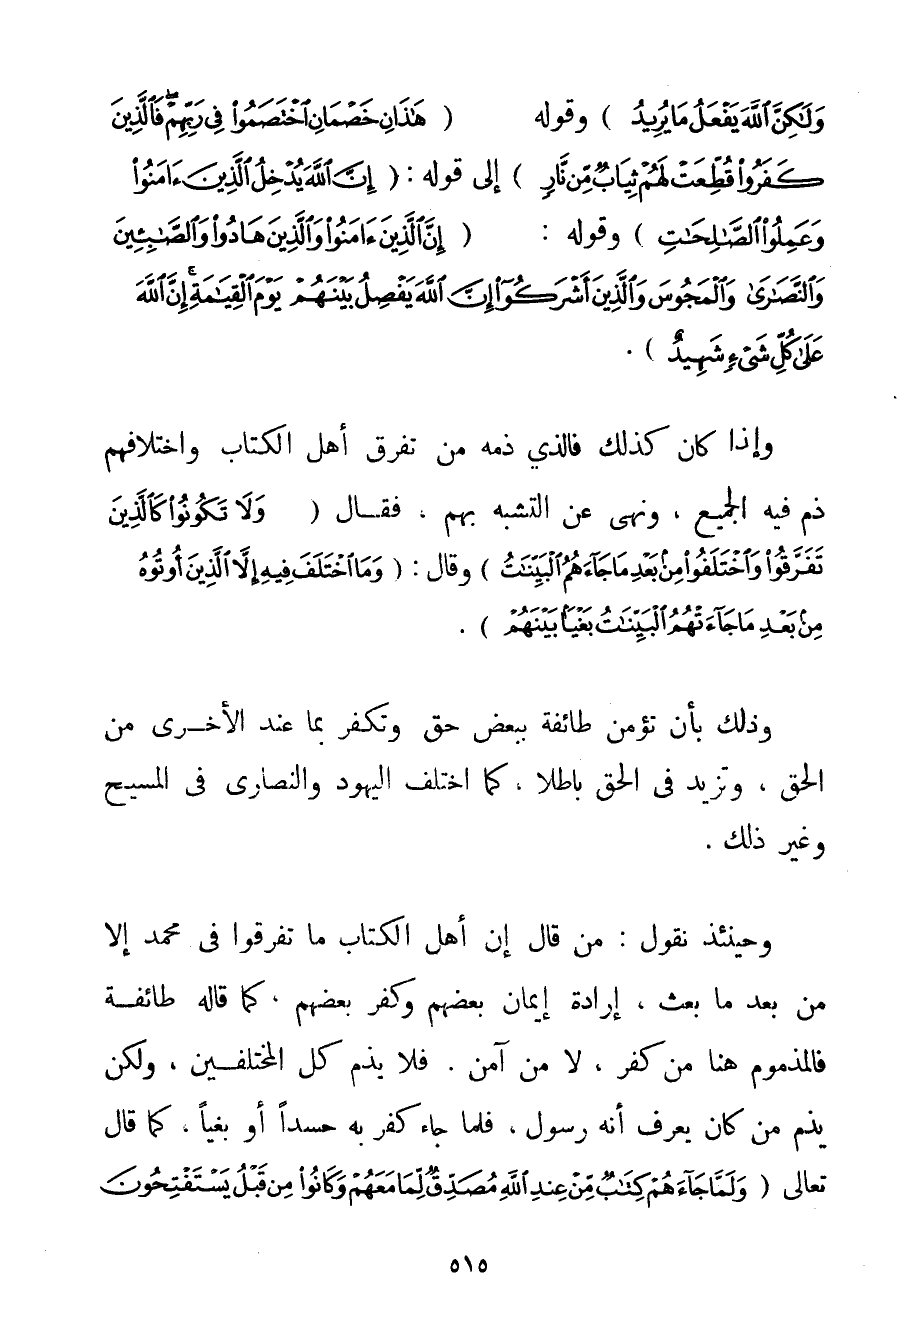 وَلَٰكِنَّ ٱللَّهَ يَفْعَلُ مَا يُرِيدُ ) وقوله ( هَٰذَانِ خَصْمَانِ ٱخْتَصَمُوا۟ فِى رَبِّهِمْ ۖ فَٱلَّذِينَ
كَفَرُوا۟ قُطِّعَتْ لَهُمْ ثِيَابٌ مِّن نَّارٍ ) إلى قوله : ( إِنَّ ٱللَّهَ يُدْخِلُ ٱلَّذِينَ ءَامَنُوا۟
وَعَمِلُوا۟ ٱلصَّٰلِحَٰتِ ) وقوله : ( إِنَّ ٱلَّذِينَ ءَامَنُوا۟ وَٱلَّذِينَ هَادُوا۟ وَٱلصَّٰبِـِٔينَ
وَٱلنَّصَٰرَىٰ وَٱلْمَجُوسَ وَٱلَّذِينَ أَشْرَكُوٓا۟ إِنَّ ٱللَّهَ يَفْصِلُ بَيْنَهُمْ يَوْمَ ٱلْقِيَٰمَةِ ۚ إِنَّ ٱللَّهَ
عَلَىٰ كُلِّ شَىْءٍ شَهِيدٌ ) .
وإذا كان كذلك فالذي ذمه من تفرق أهل الكتاب واختلافهم
ذم فيه الجميع ، ونهى عن التشبه بهم ، فقال ( وَلَا تَكُونُوا۟ كَٱلَّذِينَ
تَفَرَّقُوا۟ وَٱخْتَلَفُوا۟ مِنۢ بَعْدِ مَا جَآءَهُمُ ٱلْبَيِّنَٰتُ ) وقال : ( وَمَا ٱخْتَلَفَ فِيهِ إِلَّا ٱلَّذِينَ أُوتُوهُ
مِنۢ بَعْدِ مَا جَآءَتْهُمُ ٱلْبَيِّنَٰتُ بَغْيًۢا بَيْنَهُمْ ) .
وذلك بأن تؤمن طائفة ببعض حق وتكفر بما عند الأخرى من
الحق ، وتزيد فى الحق باطلا ، كما اختلف اليهود والنصارى فى المسيح
وغير ذلك .
وحينئذ نقول : من قال إن أهل الكتاب ما تفرقوا فى محمد إلا
من بعد ما بعث ، إرادة إيمان بعضهم وكفر بعضهم ، كما قاله طائفة
فالمذموم هنا من كفر ، لا من آمن . فلا يذم كل المختلفين ، ولكن
يذم من كان يعرف أنه رسول ، فلما جاء كفر به حسداً أو بغياً ، كما قال
تعالى ( وَلَمَّا جَآءَهُمْ كِتَٰبٌ مِّنْ عِندِ ٱللَّهِ مُصَدِّقٌ لِّمَا مَعَهُمْ وَكَانُوا۟ مِن قَبْلُ يَسْتَفْتِحُونَ
٥١٥